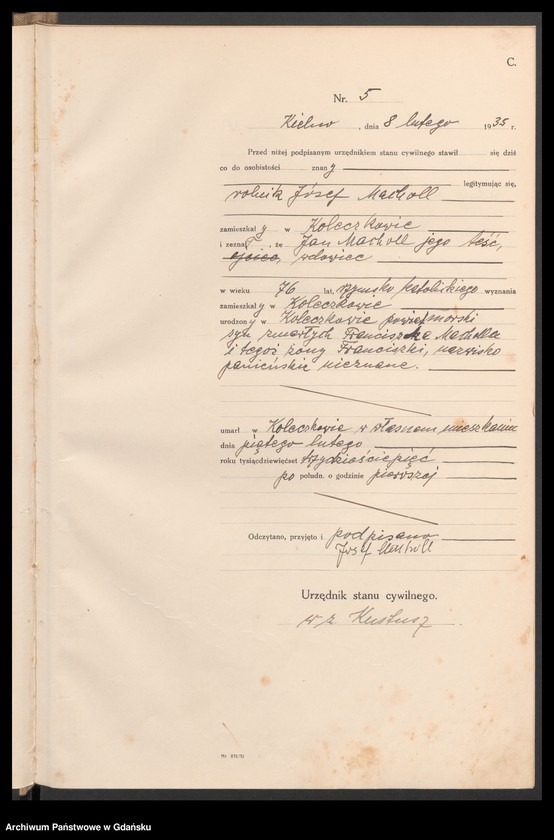 C.
Nr. 5
Kielno, dnia 8 lutego 1935 r.
Przed niżej podpisanym urzędnikiem stanu cywilnego stawił się dziś
co do osobistości znany
legitymując się,
rolnik Józef Macholl
zamieszkały w Koleczkowie
i zeznał, że Jan Macholl jego teść,
ojciec, wdowiec
w wieku 76 lat, rzymsko katolickiego wyznania
zamieszkały w Koleczkowie
urodzony w Koleczkowie powiat morski
syn zmarłych Franciszka Macholla
i tegoż żony Franciszki, nazwisko
panieńskie nieznane.
umarł w Koleczkowie w własnem mieszkaniu
dnia piątego lutego
roku tysiącdziewięćset trzydzieściepięć
po połudn. o godzinie pierwszej
Odczytano, przyjęto i podpisano
Józef Macholl
Urzędnik stanu cywilnego.
w z.
Archiwum Państwowe w Gdańsku